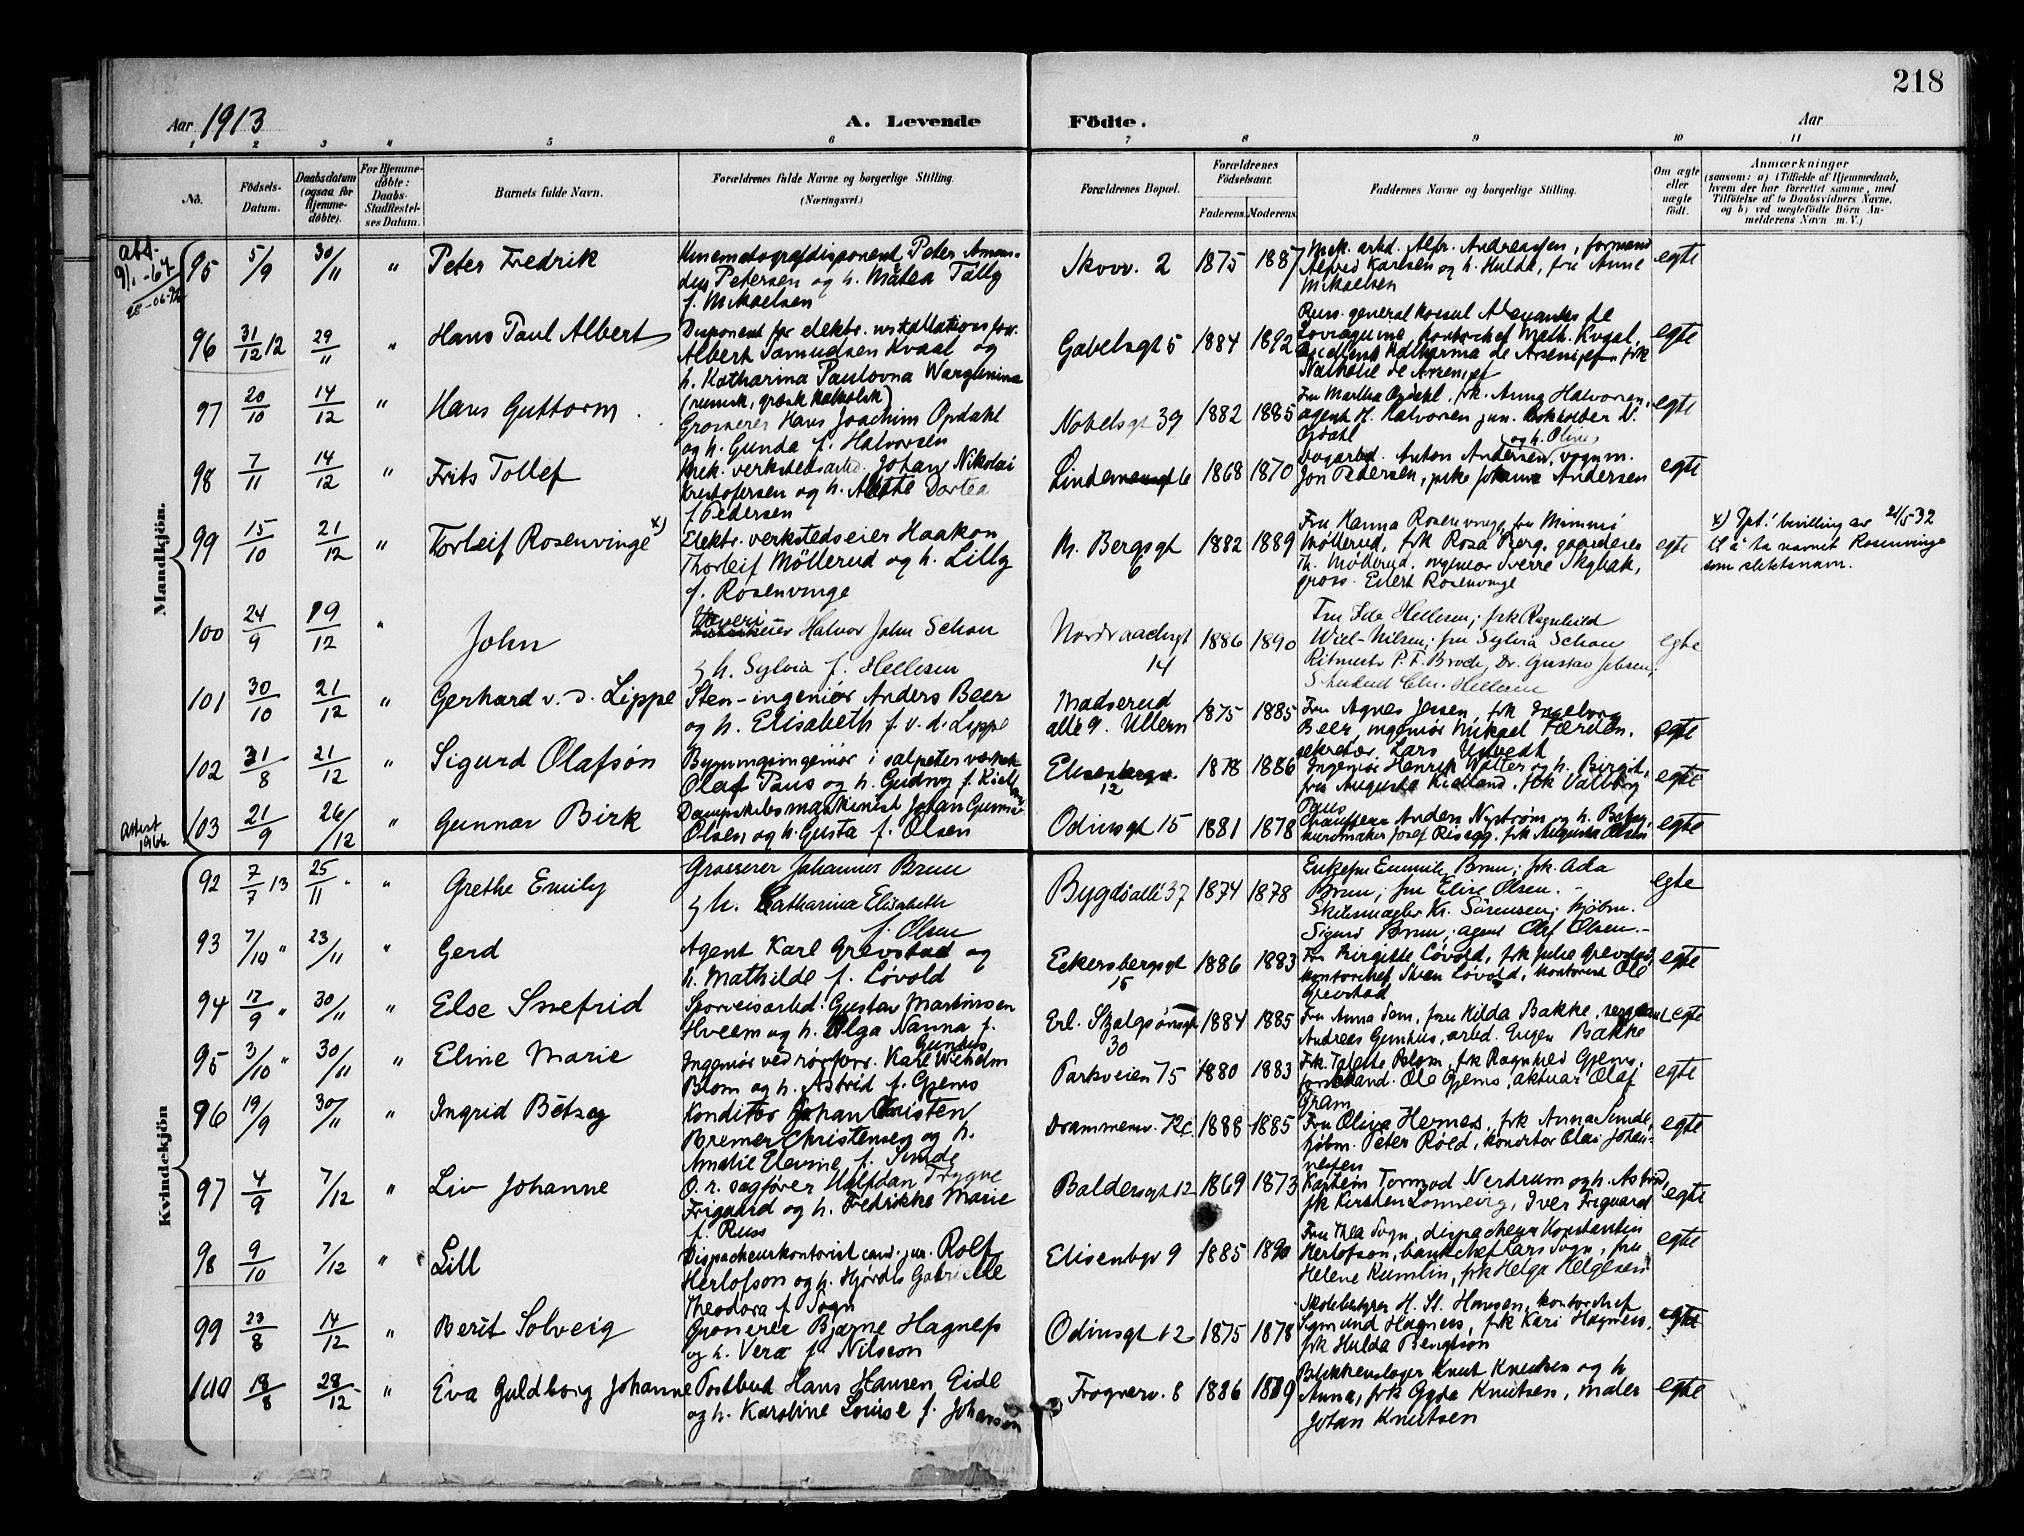 218
Aar 1913
A. Levende Födte.
Aar
1 2 3 4 5 6 7 8 9 10 11
No.
Födsels-Datum.
Daabsdatum (ogsaa for Hjemmedöbte).
For Hjemmedöbte: Daabs-Stadfæstelses Datum.
Barnets fulde Navn.
Forældrenes fulde Navne og borgerlige Stilling. (Næringsvei.)
Forældrenes Bopæl.
Forældrenes Födselsaar.
Faderens. Moderens.
Faddernes Navne og borgerlige Stilling.
Om ægte eller uægte födt.
Anmærkninger
(saasom: a) i Tilfælde af Hjemmedaab, hvem der har forrettet samme, med Tilföielse af to Daabsvidners Navne, og b) ved uægtefödte Börn Anmelderens Navn m. V.)
Mandkjön.
95 5/9 30/11 " Peter Fredrik
Kinematografdisponent Peter Aman-
dus Petersen og h. Matea Tally
f. Mikaelsen
Skovv. 2 1875 1887
Mek. arbd. Alfr. Andreassen, formand
Alfred Karlsen og h. Hulda, fru Anne
Mikaelsen
egte
96 31/12 12 29/11 " Hans Paul Albert
Disponent for elektr. installationsforr.
Albert Samuelsen Kvaal og
h. Katharina Paulovna Wargunina
(russisk, græsk katholsk)
Gabelsgt 5 1884 1892
Russ. general konsul
kontorchef Math. Kvaal,
egte
97 20/10 14/12 " Hans Guttorm
Grosserer Hans Joachim Opdahl
og h. Gunda f. Halvorsen
Nobelsgt 39 1882 1885
Fru Martha Opdahl, frk. Anna Halvorsen,
agent H. Halvorsen jun. bokholder
Opdahl
egte
98 7/11 14/12 " Frits Tollef
Mek. verkstedsarbd. Johan Nikolai
Kristofersen og h. Alette Dortea
f. Pedersen
1868 1870
Anton Andersen og h. Oline, vognm.
Jon Pedersen, pike Johanne Andersen
egte
99 15/10 21/12 " Thorleif Rosenvinge x)
Elektr. verkstedseier Haakon
Thorleif Möllerud og h. Lilly
f. Rosenvinge
M. Bergsgt 6 1882 1889
Fru Hanna Rosenvinge, fru Mimmi
Möllerud, frk Rosa Berg, gaardeier
Th. Möllerud, ingeniør Sverre
gross. Eilert Rosenvinge
egte
x) Jpt.' bevilling av 21/5-32
til å ta navnet Rosenvinge
som slektsnavn.
100 24/9 19/12 " John
Væveri
eier Halvor John Schou
& h. Sylvia f. Hellesen
Nordraachsgt 14 1886 1890
Fru Ida Hellesen; frk Ragnhild
Wiel-Nilsen; fru Sylvia Schou
Ritmester P. T. Broch, Dr. Gustav Jebsen;
Student Chr. Hellesen
egte
101 30/10 21/12 " Gerhard v. d. Lippe
Sten-ingeniør Anders Beer
og h. Elisabeth f. v. d. Lippe
Madserud alle 9. Ullern 1875 1885
Fru Agnes Jersen, frk Ingeborg
Beer, ingeniør Mikael Færden,
sekretær Lars
egte
102 31/8 21/12 " Sigurd Olafsön
Bygningsingeniør i salpeterverket
Olaf Paus og h. Gudrun f. Kielland
Elisenbergv. 12 1878 1886
Ingeniør Henrik Wetter og h. Birgit,
fru Augusta Kielland, frk Valborg
Paus
egte
103 21/9 26/12 " Gunnar Birk
Dampskibsmaskinist Johan Gunnar
Olsen og h. Gusta f. Olsen
Odinsgt 15 1881 1878
Chauffeur Anders Nyström og h. Betsy,
buntmaker Josef Risegg. frk Augusta Olsen
egte
Attest 1966
Kvindekjön
92 7/7 13 25/11 " Grethe Emily
Grosserer Johannes Bruu
& h. Catharina Elisabeth
f. Olsen
Bygdöalle 37 1874 1878
Enkefru Emmily Bruu; frk. Ada
Bruu; fru Elise Olsen.
Skibsmægler Kr. Sörensen; kjöbm.
Sigurd Bruu; agent Olaf Olsen.
egte
93 7/10 " 23/11 " Gerd
Agent Karl Grevstad og
h. Mathilde f. Lövold
Eckersbergsgt 15 1886 1883
Fru Birgitte Lövold, frk Julie Grevstad,
kontorchef Sven Lövold, kontorist Ole
Grevstad
egte
94 17/9 " 30/11 " Else Snefrid
Sporveisarbd. Gustav Martinsen
Hveem og h. Olga Nanna f.
Gunhus
Erl. Skjalgsönsgt 30 1884 1885
Fru Anna Dam, fru Hilda Bakke, sergeant
Andreas Gunhus, arbd. Eugen Bakke
egte
95 3/10 " 30/11 " Eline Marie
Ingeniør ved rörforr. Karl Wilhelm
Blom og h. Astrid f. Gjems
Parkveien 75 1880 1883
Frk. Tabette Blom, frk Ragnhild Gjems,
forstkand. Ole Gjems, aktuar Olaf
Gram
egte
96 19/9 30/11 " Ingrid Betzy
Konditor Johan Kristen
Bremer Christensen og h.
Amalie Elevine f. Sunde
Drammensv. 72c 1888 1885
Fru Oliva Hernæs, frk Anna Sunde,
kjöbm. Peter Röed, konditor Olai Johan-
nesen
egte
97 4/9 7/12 " Liv Johanne
O. r. sagförer Halfdan Trygve
Frigaard og h. Fredrikke Marie
f. Russ
Baldersgt 12 1869 1873
Kaptein Tormod Nerdrum og h. Astrid,
frk Kirsten Lonnevig, Iver Frigaard
egte
98 9/10 7/12 " Lill
Dispacheurkontorist cand. jur. Rolf
Herlofson og h. Hjördis Gabrielle
Theodora f. Sogn
Elisenbgv 9 1885 1890
Fru Thea Sogn, dispacheur Konstantin
Herlofson, bankchef Lars Sogn, fru
Helene Rumlin, frk Helga Helgesen
egte
99 23/8 14/12 " Berit Solveig
Grosserer Bjarne Hagness
og h. Vera f. Nilsson
Odinsgt 12 1875 1878
Skolebestyrer H. St. Hansen, kontorchef
Sigmund Hagness, frk Kari Hagness,
frk Hulda Bengtson
egte
100 18/8 28/12 " Eva Guldborg Johanne
Postbud Hans Hansen Eide
og h. Karoline Louise f. Johanson
Frognerv. 8 1886 1889
Blikkenslager Knut Knutsen og h
Anna, frk Gyda Knutsen, maler
Johan Knutsen
egte